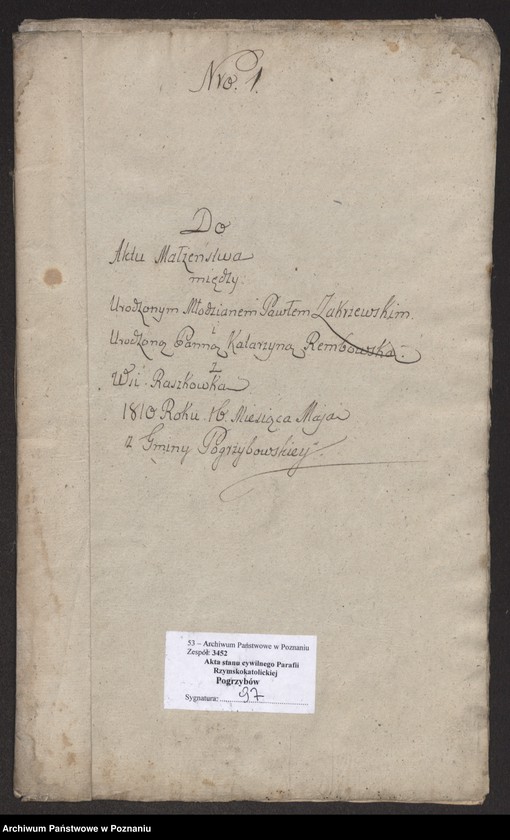 Nro. 1.
Do
Aktu Małzeństwa
między
Urodzonym Młodzianem Pawłem Zakrzewskim.
i
Urodzoną Panną Katarzyną Rembowską.
z
Wsi Raszkówka
1810 Roku 16. Miesiąca Maja
z Gminy Pogrzybowskiey.
53 – Archiwum Państwowe w Poznaniu
Zespół: 3452
Akta stanu cywilnego Parafii
Rzymskokatolickiej
Pogrzybów
Sygnatura: 97
Archiwum Państwowe w Poznaniu
Archiwum Państwowe w Poznaniu